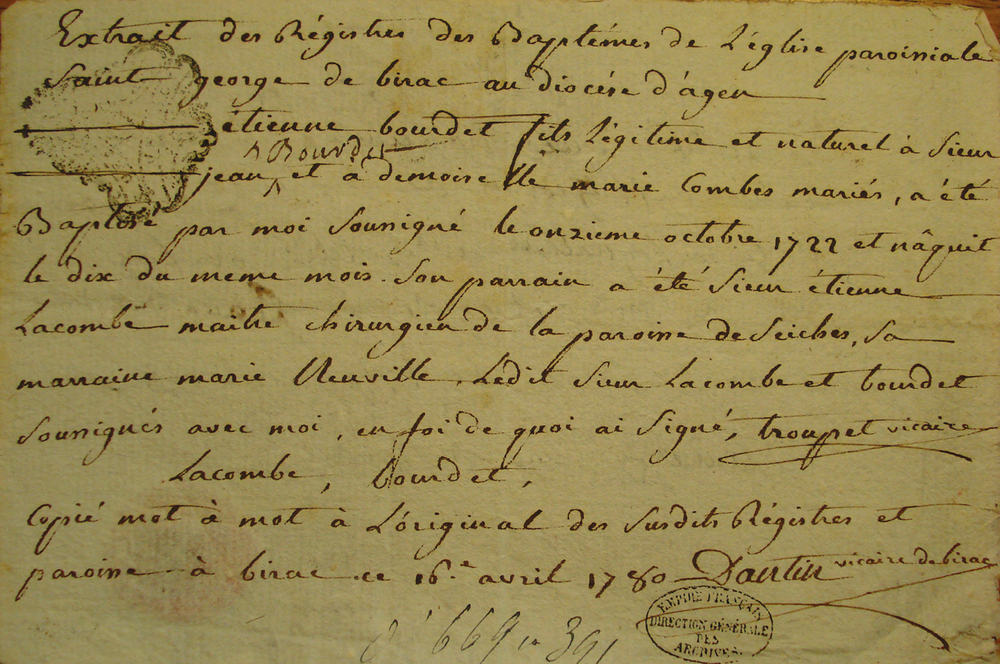 Extrait des Régistres des Baptémes de L'église paroissiale
Saint george de birac au diocése d'agen
étienne bourdet fils légitime et naturel à Sieur
Bourdet
jean et a demoiselle marie Combes mariés, a été
Baptisé par moi Soussigné le onzieme octobre 1722 et nâquit
le dix du meme mois. Son parrain a été Sieur étienne
Lacombe maitre chirurgien de la paroisse de Seiches, Sa
marraine marie Neuville. Ledit Sieur Lacombe et bourdet
Soussignés avec moi, en foi de quoi ai Signé, troupel vicaire
Lacombe, bourdet,
Copié mot à mot à L'original des Susdits Régistres et
paroisse à birac ce 16.e avril 1780 Dantin vicaire de birac
EMPIRE FRANÇAIS
DIRECTION GÉNÉRALE
DES
ARCHIVES.
669 391